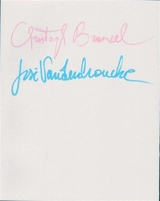 Christoph Brüneel
José Vandenbroucke